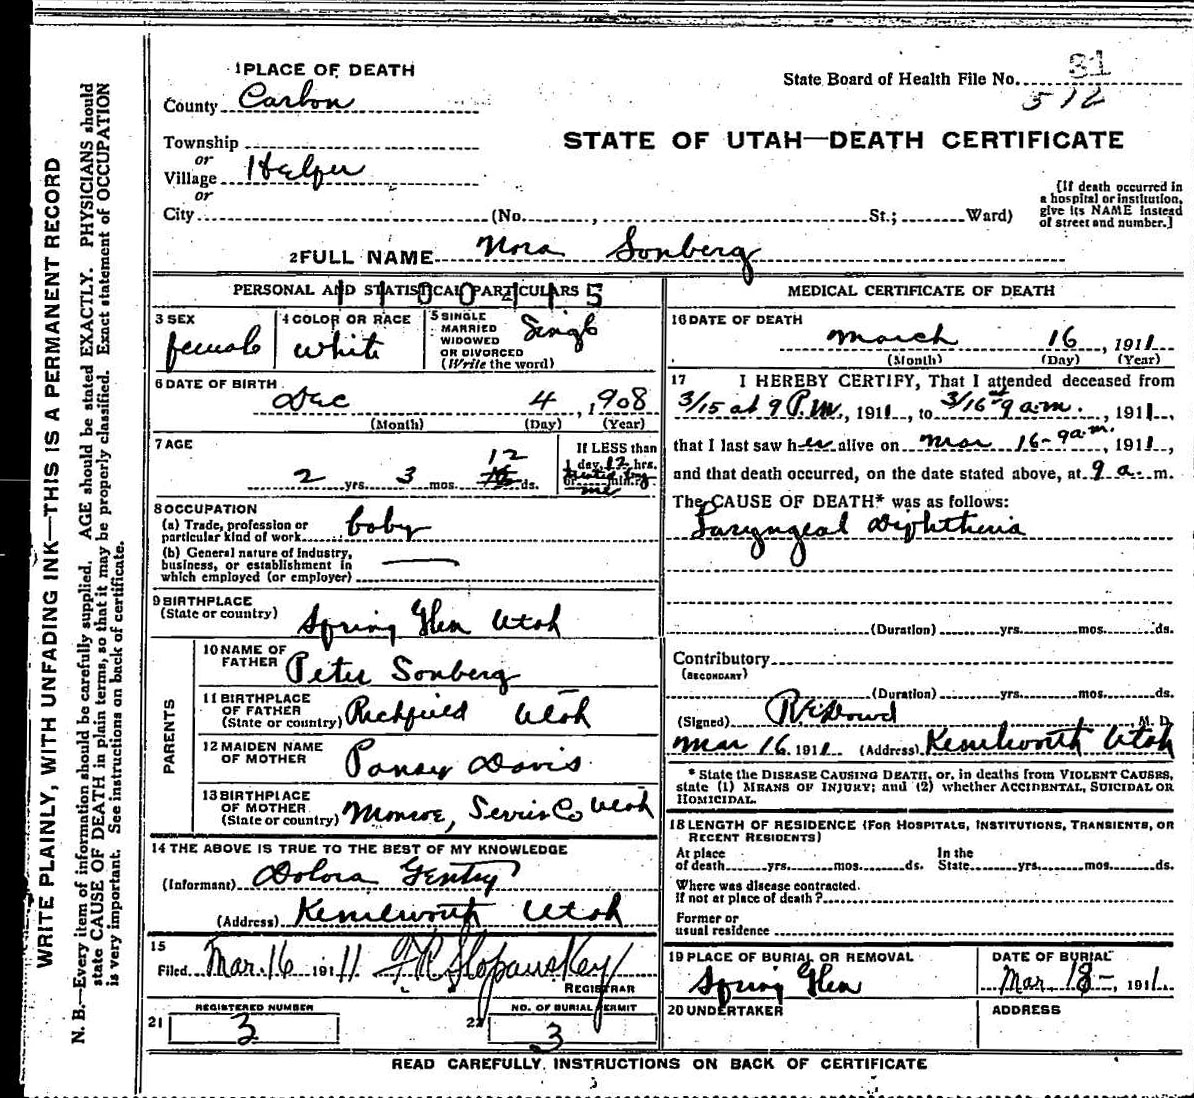 WRITE PLAINLY, WITH UNFADING INK—THIS IS A PERMANENT RECORD
N. B.—Every item of information should be carefully supplied. AGE should be stated EXACTLY. PHYSICIANS should
state CAUSE OF DEATH in plain terms, so that it may be properly classified. Exact statement of OCCUPATION
is very important. See instructions on back of certificate.
1 PLACE OF DEATH
County Carbon
Township
or
Village Helper
or
City (No. , St.; Ward)
State Board of Health File No. 31
512
STATE OF UTAH—DEATH CERTIFICATE
[If death occurred in
a hospital or institution,
give its NAME instead
of street and number.]
2 FULL NAME Nora Sonberg
PERSONAL AND STATISTICAL PARTICULARS
3 SEX
female
4 COLOR OR RACE
white
5 SINGLE
MARRIED
WIDOWED
OR DIVORCED
(Write the word)
Single
6 DATE OF BIRTH
Dec 4, 1908
(Month) (Day) (Year)
7 AGE
2 yrs. 3 mos. 12 ds.
If LESS than
1 day, 12 hrs.
or min.?
8 OCCUPATION
(a) Trade, profession or
particular kind of work baby
(b) General nature of industry,
business, or establishment in
which employed (or employer)
9 BIRTHPLACE
(State or country) Spring Glen Utah
PARENTS
10 NAME OF
FATHER Peter Sonberg
11 BIRTHPLACE
OF FATHER
(State or country) Richfield Utah
12 MAIDEN NAME
OF MOTHER Pansy Davis
13 BIRTHPLACE
OF MOTHER
(State or country) Monroe, Sevier Co Utah
14 THE ABOVE IS TRUE TO THE BEST OF MY KNOWLEDGE
(Informant) Dolora Gentry
(Address) Kenilworth Utah
15
Filed Mar. 16 1911
REGISTRAR
REGISTERED NUMBER
21 3
NO. OF BURIAL PERMIT
22 3
MEDICAL CERTIFICATE OF DEATH
16 DATE OF DEATH
March 16, 1911
(Month) (Day) (Year)
17 I HEREBY CERTIFY, That I attended deceased from
3/15 at 9 P.M., 1911, to 3/16 9 a.m., 1911,
that I last saw her alive on Mar 16-9 a.m. 1911,
and that death occurred, on the date stated above, at 9 a. m.
The CAUSE OF DEATH* was as follows:
Laryngeal Diphtheria
(Duration) yrs. mos. ds.
Contributory
(SECONDARY)
(Duration) yrs. mos. ds.
(Signed) M. D.
Mar 16 1911 (Address) Kenilworth Utah
* State the DISEASE CAUSING DEATH, or, in deaths from VIOLENT CAUSES,
state (1) MEANS OF INJURY; and (2) whether ACCIDENTAL, SUICIDAL OR
HOMICIDAL.
18 LENGTH OF RESIDENCE (FOR HOSPITALS, INSTITUTIONS, TRANSIENTS, OR
RECENT RESIDENTS)
At place of death yrs. mos. ds. In the State yrs. mos. ds.
Where was disease contracted.
If not at place of death?
Former or
usual residence
19 PLACE OF BURIAL OR REMOVAL
Spring Glen
DATE OF BURIAL
Mar. 18- 1911.
20 UNDERTAKER
ADDRESS
READ CAREFULLY INSTRUCTIONS ON BACK OF CERTIFICATE